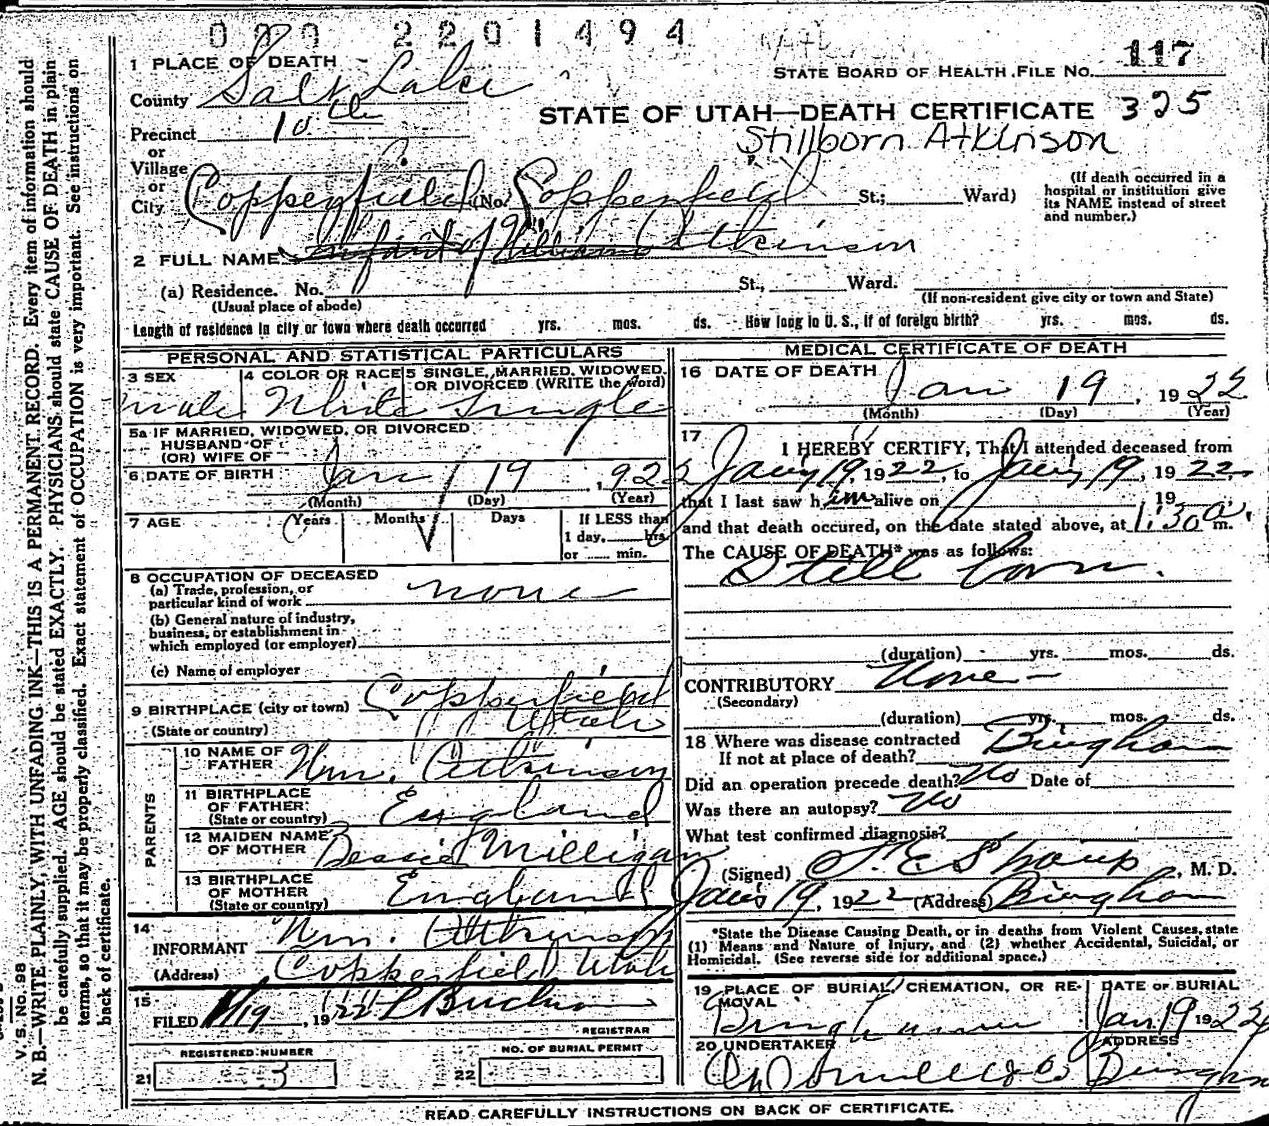 000 2201494
1 PLACE OF DEATH
County Salt Lake
Precinct 10th
or
Village
or
City Copperfield (No. Copperfield St.; Ward)
STATE BOARD OF HEALTH FILE No. 117
STATE OF UTAH—DEATH CERTIFICATE 325
Stillborn Atkinson
(If death occurred in a
hospital or institution give
its NAME instead of street
and number.)
2 FULL NAME infant of William Atkinson
(a) Residence. No. St., Ward.
(Usual place of abode) (If non-resident give city or town and State)
Length of residence in city or town where death occurred yrs. mos. ds. How long in U. S., if of foreign birth? yrs. mos. ds.
PERSONAL AND STATISTICAL PARTICULARS
3 SEX 4 COLOR OR RACE 5 SINGLE, MARRIED, WIDOWED,
OR DIVORCED (WRITE the word)
male White Single
5a IF MARRIED, WIDOWED, OR DIVORCED
HUSBAND OF
(OR) WIFE OF
6 DATE OF BIRTH Jan 19, 1922
(Month) (Day) (Year)
7 AGE Years Months Days If LESS than
1 day, hrs.
or min.
8 OCCUPATION OF DECEASED
(a) Trade, profession, or
particular kind of work none
(b) General nature of industry,
business, or establishment in
which employed (or employer)
(c) Name of employer
9 BIRTHPLACE (city or town) Copperfield
(State or country) Utah
PARENTS
10 NAME OF
FATHER Wm. Atkinson
11 BIRTHPLACE
OF FATHER
(State or country) England
12 MAIDEN NAME
OF MOTHER Bessie Milligan
13 BIRTHPLACE
OF MOTHER
(State or country) England
14
INFORMANT Wm. Atkinson
(Address) Copperfield Utah
15
FILED 1/19, 1922
REGISTRAR
REGISTERED NUMBER NO. OF BURIAL PERMIT
21 3 22
MEDICAL CERTIFICATE OF DEATH
16 DATE OF DEATH Jan 19, 1922
(Month) (Day) (Year)
17
I HEREBY CERTIFY, That I attended deceased from
Jany 19, 1922, to Jany 19, 1922,
that I last saw him alive on 19
and that death occured, on the date stated above, at 1:30 a m.
The CAUSE OF DEATH* was as follows:
Still born.
(duration) yrs. mos. ds.
CONTRIBUTORY None
(Secondary)
(duration) yrs. mos. ds.
18 Where was disease contracted
If not at place of death? Bingham
Did an operation precede death? No Date of
Was there an autopsy? No
What test confirmed diagnosis?
(Signed) , M. D.
19, 1922 (Address) Bingham
*State the Disease Causing Death, or in deaths from Violent Causes, state
(1) Means and Nature of Injury, and (2) whether Accidental, Suicidal, or
Homicidal. (See reverse side for additional space.)
19 PLACE OF BURIAL, CREMATION, OR RE-
MOVAL DATE OF BURIAL
Bingham Jan. 19 1922
20 UNDERTAKER ADDRESS
Bingham
READ CAREFULLY INSTRUCTIONS ON BACK OF CERTIFICATE.
V. S. No. 98
N. B.—WRITE PLAINLY, WITH UNFADING INK—THIS IS A PERMANENT RECORD. Every item of information should
be carefully supplied. AGE should be stated EXACTLY. PHYSICIANS should state CAUSE OF DEATH in plain
terms, so that it may be properly classified. Exact statement of OCCUPATION is very important. See instructions on
back of certificate.